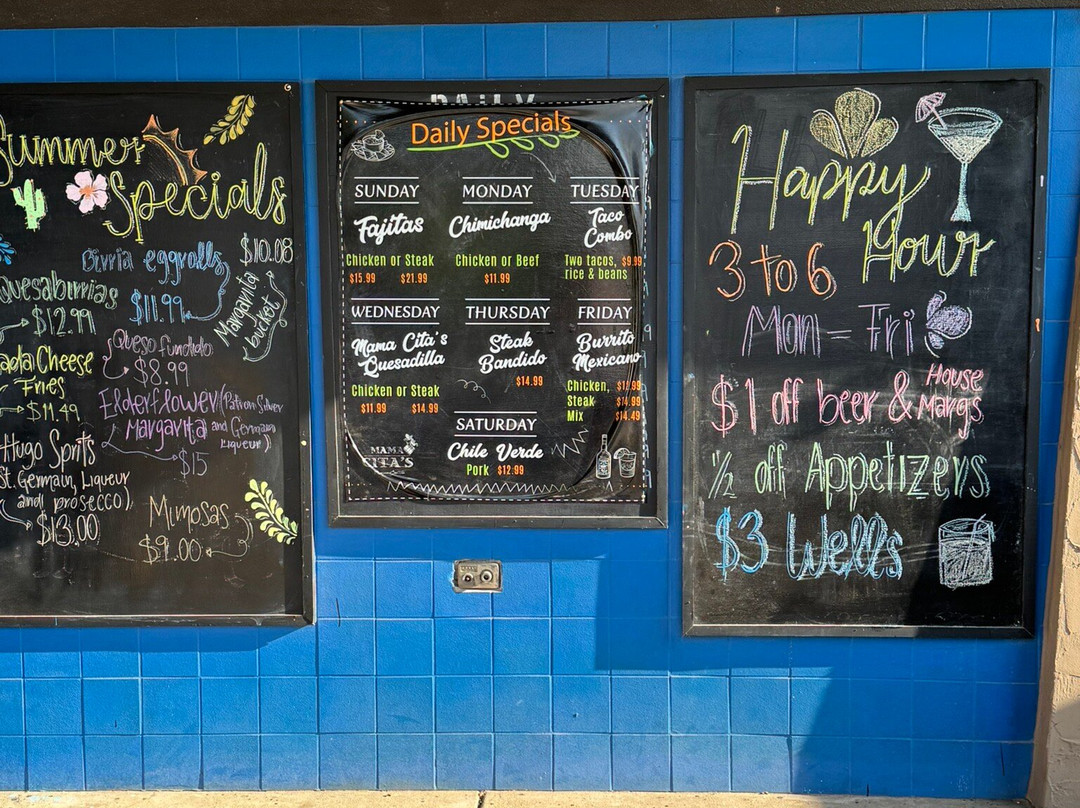 Summer
Specials
$10.08
Margarita
bucket
Birria eggrolls
$11.99
Quesabirrias
$12.99
Queso fundido
$8.99
Cheese
Fries
$11.49
Elderflower (Patron Silver
Margarita and Germain
Liqueur)
$15
Hugo Sprits
St. Germain, Liqueur
and prosecco)
$13.00
Mimosas
$9.00
DAILY
Daily Specials
SUNDAY
Fajitas
Chicken or Steak
$15.99 $21.99
MONDAY
Chimichanga
Chicken or Beef
$11.99
TUESDAY
Taco
Combo
Two tacos, $9.99
rice & beans
WEDNESDAY
Mama Cita's
Quesadilla
Chicken or Steak
$11.99 $14.99
THURSDAY
Steak
Bandido
$14.99
FRIDAY
Burrito
Mexicano
Chicken,
Steak
Mix $14.49
SATURDAY
Chile Verde
Pork $12.99
MAMA
CITA'S
Happy
Hour
3 to 6
Mon - Fri
$1 off beer & House
Margs
½ off Appetizers
$3 Wells